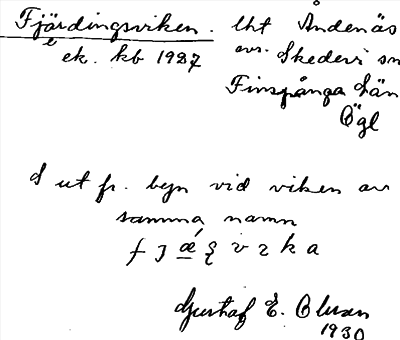 Fjärdingsviken. lht Åndenäs
e ek. kb 1927 avs. Skedevi sn
Finspånga län
Ögl
S ut fr. byn vid viken av
samma namn
Gustaf E. Olsson
1930